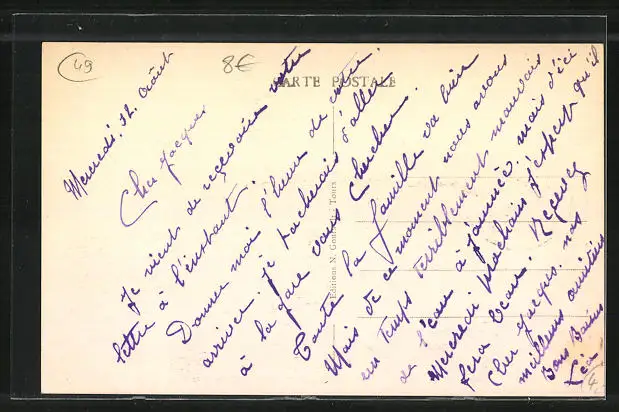 49
8€
CARTE POSTALE
Editions N. G Tours
Mercredi. 12. Août
Cher Jacques
Je vient de reçevoire votre
lettre à l'instant.
Donner moi l'heure de votre
arrivée. je tacherais d'aller
à la gare vous chercher.
Toute la famille va bien
Mais de ce moment nous avons
un temps terriblement mauvais
de l'eau à journée, mais d'ici
Mercredi prochais j'espert qu'il
fera beau. Recevez
Cher Jacques. nos
meilleurs amitiées
Bons Baisers
Léa